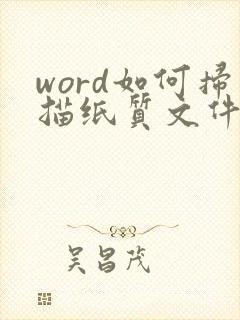 word如何掃
描纸质文件
吴昌茂